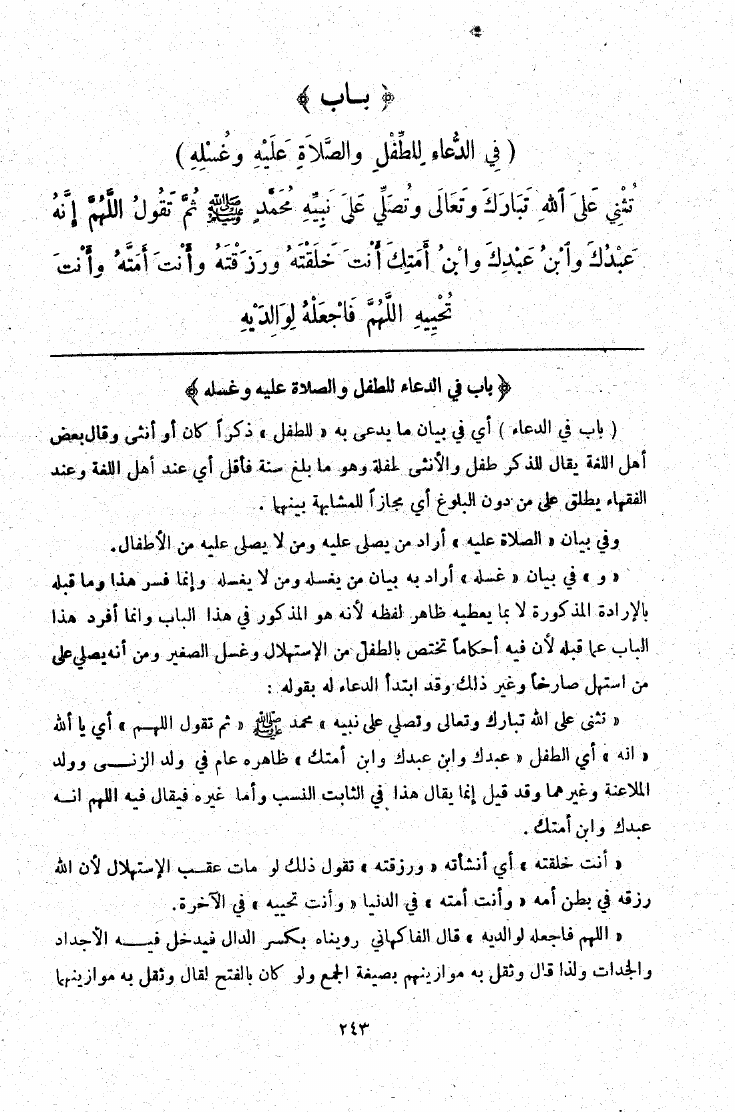 ﴿ بـاب ﴾
( فِي الدُّعاءِ لِلطِّفْلِ والصَّلاَةِ عَلَيْهِ وغُسْلِهِ )
تُثْنِي عَلَىَ ٱللهِ تَبَارَكَ وَتَعَالَى وتُصَلِّي عَلَىَ نَبِيِّهِ مُحَمَّدٍ ﷺ ثُمَّ تَقُولُ اللَّهُمَّ إِنَّهُ
عَبْدُكَ وٱبْنُ عَبْدِكَ وابْنُ أَمَتِكَ أَنْتَ خَلَقْتَهُ ورَزَقْتَهُ وأَنْتَ أَمَتَّهُ وأَنْتَ
تُحْيِيهِ اللَّهُمَّ فَاجْعَلْهُ لِوَالِدَيْهِ
﴿ باب في الدعاء للطفل والصلاة عليه وغسله ﴾
( باب في الدعاء ) أي في بيان ما يدعى به « للطفل » ذكراً كان أو أنثى وقال بعض
أهل اللغة يقال للذكر طفل والأنثى طفلة وهو ما بلغ سنة فأقل أي عند أهل اللغة وعند
الفقهاء يطلق على من دون البلوغ أي مجازاً للمشابهة بينهما .
وفي بيان « الصلاة عليه » أراد من يصلى عليه ومن لا يصلى عليه من الأطفال.
« و » في بيان « غسله » أراد به بيان من يغسله ومن لا يغسله وإنما فسر هذا وما قبله
بالإرادة المذكورة لا بما يعطيه ظاهر لفظه لأنه هو المذكور في هذا الباب وانما أفرد هذا
الباب عما قبله لأن فيه أحكاماً تختص بالطفل من الإستهلال وغسل الصغير ومن أنه يصلي على
من استهل صارخاً وغير ذلك وقد ابتدأ الدعاء له بقوله :
« تثنى على الله تبارك وتعالى وتصلي على نبيه » محمد ﷺ « ثم تقول اللهـم » أي يا ألله
« انه » أي الطفل « عبدك وابن عبدك وابن أمتك » ظاهره عام في ولد الزنـــى وولد
الملاعنة وغيرهما وقد قيل إنما يقال هذا في الثابت النسب وأما غيره فيقال فيه اللهم انــه
عبدك وابن أمتك .
« أنت خلقته » أي أنشأته « ورزقته » تقول ذلك لو مات عقـب الإستهلال لأن الله
رزقه في بطن أمه « وأنت أمته » في الدنيا « وأنت تحييه » في الآخرة.
« اللهم فاجعله لوالديه » قال الفاكهاني رويناه بكسر الدال فيدخل فيــه الأجداد
والجدات ولذا قال وثقل به موازينهم بصيغة الجمع ولو كان بالفتح لقال وثقل به موازينهما
٢٤٣